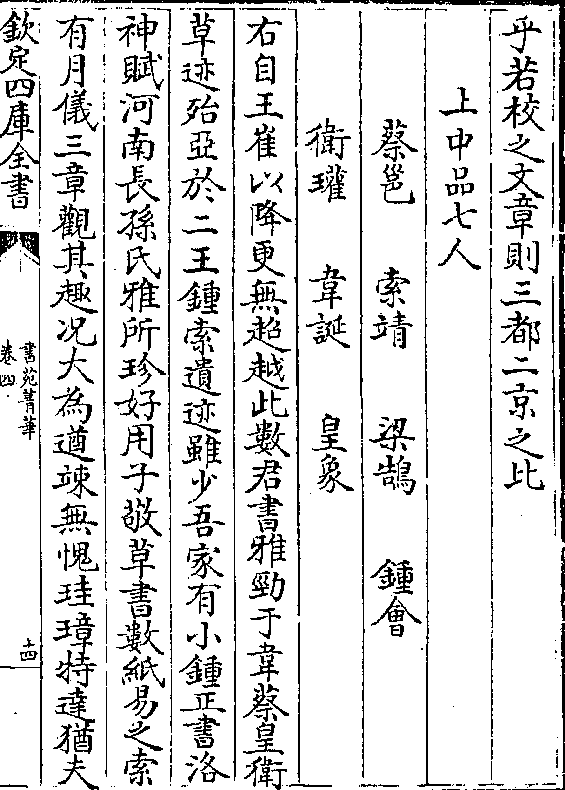 乎若校之文章則三都二京之比
上中品七人
蔡邕　索靖　梁鵠　鍾會
衛瓘　韋誕　皇象
右自王崔以降更無超越此數君書雅勁于韋蔡皇衛
草迹殆亞於二王鍾索遺迹雖少吾家有小鍾正書洛
神賦河南長孫氏雅所珍好用子敬草書數紙易之索
有月儀三章觀其趣况大為遒竦無愧珪璋特達猶夫
欽定四庫全書
書苑菁華
卷四
十四